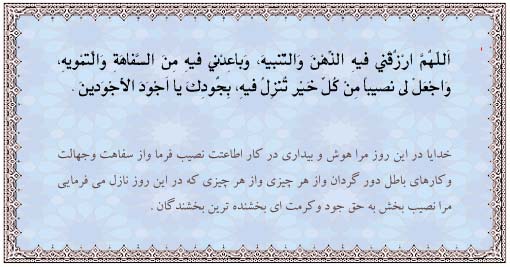 اَللّهُمَّ ارْزُقْني فيهِ الذِّهْنَ وَالتَّنْبيهَ، وَباعِدْني فيهِ مِنَ السَّفاهَةِ وَالتَّمْويهِ،
وَاجْعَلْ لى نَصيباً مِنْ كُلِّ خَيْرٍ تُنْزِلُ فيهِ، بِجُودِكَ يا اَجْوَدَ الاَْجْوَدينَ .
خدایا در این روز مرا هوش و بیداری در کار اطاعتت نصیب فرما واز سفاهت وجهالت
وکارهای باطل دور گردان واز هر چیزی واز هر چیزی که در این روز نازل می فرمایی
مرا نصیب بخش به حق جود وکرمت ای بخشنده ترین بخشندگان .